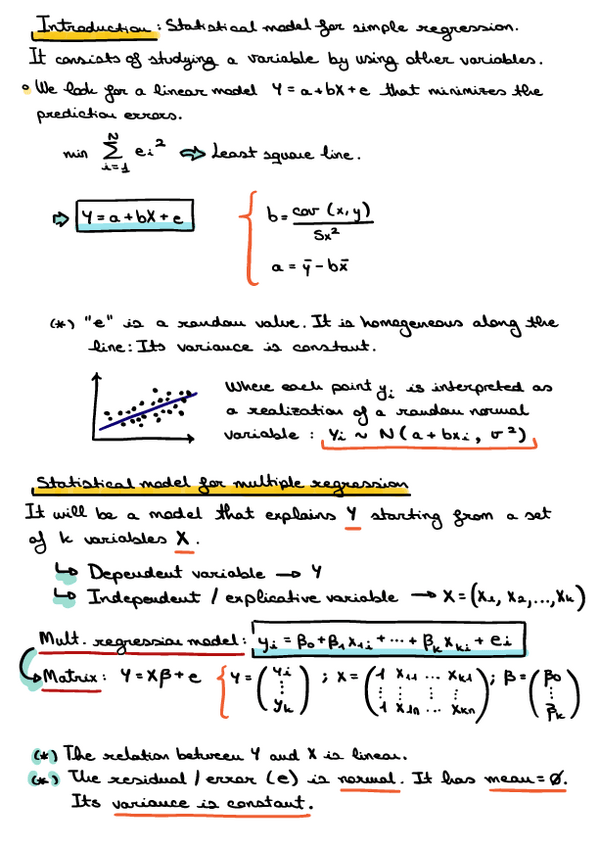 Introduction: Statistical model for simple regression.
It consists of studying a variable by using other variables.
° We look for a linear model Y = a + bX + e that minimizes the
prediction errors.
min Σ_{i=1}^{N} e_i² ⇒ Least square line.
⇒ Y = a + bX + e { b = cov (x, y) / Sx²
a = ȳ - bx̄
(*) "e" is a random value. It is homogeneous along the
line: Its variance is constant.
Where each point y_i is interpreted as
a realization of a random normal
variable : Y_i ~ N(a + bx_i, σ²)
Statistical model for multiple regression
It will be a model that explains Y starting from a set
of k variables X.
↳ Dependent variable → Y
↳ Independent / explicative variable → X = (X₁, X₂, ..., X_k)
Mult. regression model: y_i = β₀ + β₁x₁i + ... + β_k x_ki + e_i
→ Matrix: Y = Xβ + e { Y = (y_i ⋮ y_k) ; X = (1 x₁₁ ... x_k1 ⋮ ⋮ ⋮ ⋮ 1 x₁n ... x_kn) ; β = (β₀ ⋮ β_k)
(*) The relation between Y and X is linear.
(*) The residual / error (e) is normal. It has mean = Ø.
Its variance is constant.